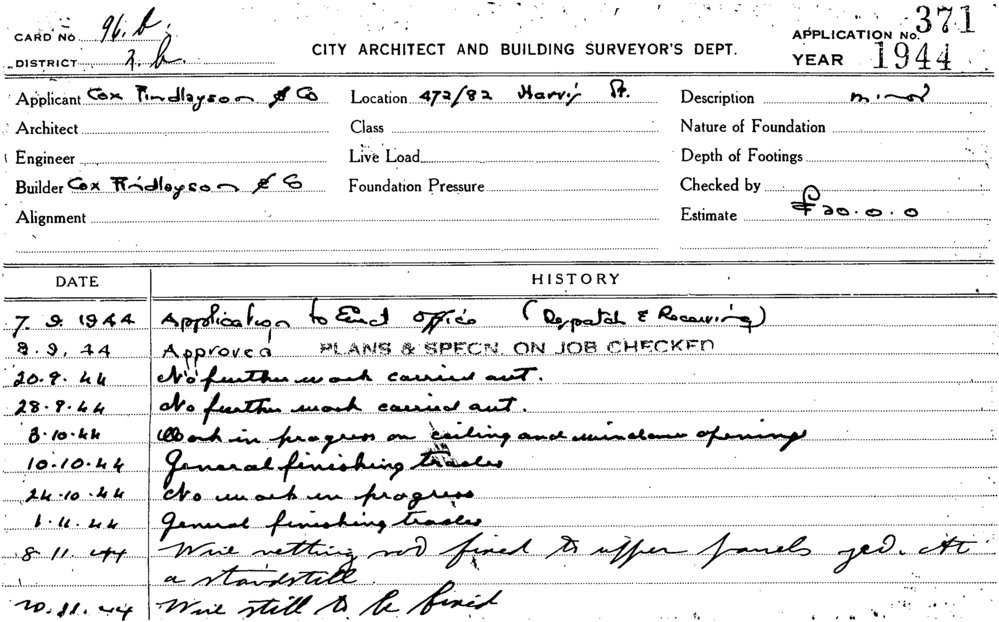 CARD No 96.D.
APPLICATION No. 371
DISTRICT 2.b.
CITY ARCHITECT AND BUILDING SURVEYOR'S DEPT.
YEAR 1944
Applicant Cox Findlayson & Co Location 472/82 Harris St. Description minor
Architect Class Nature of Foundation
Engineer Live Load Depth of Footings
Builder Cox Findlayson & Co Foundation Pressure Checked by
Alignment Estimate £20.0.0
DATE HISTORY
7.9.1944 Application to Erect Office (Despatch & Receiving)
8.9.44 Approved PLANS & SPECN. ON JOB CHECKED
20.9.44 No further work carried out.
28.9.44 No further work carried out.
3.10.44 Work in progress on ceiling and window openings
10.10.44 General finishing trades
24.10.44 No work in progress
1.11.44 General finishing trades
8.11.44 Wire netting not fixed to upper panels yet. At
a standstill.
20.11.44 Wire still to be fixed